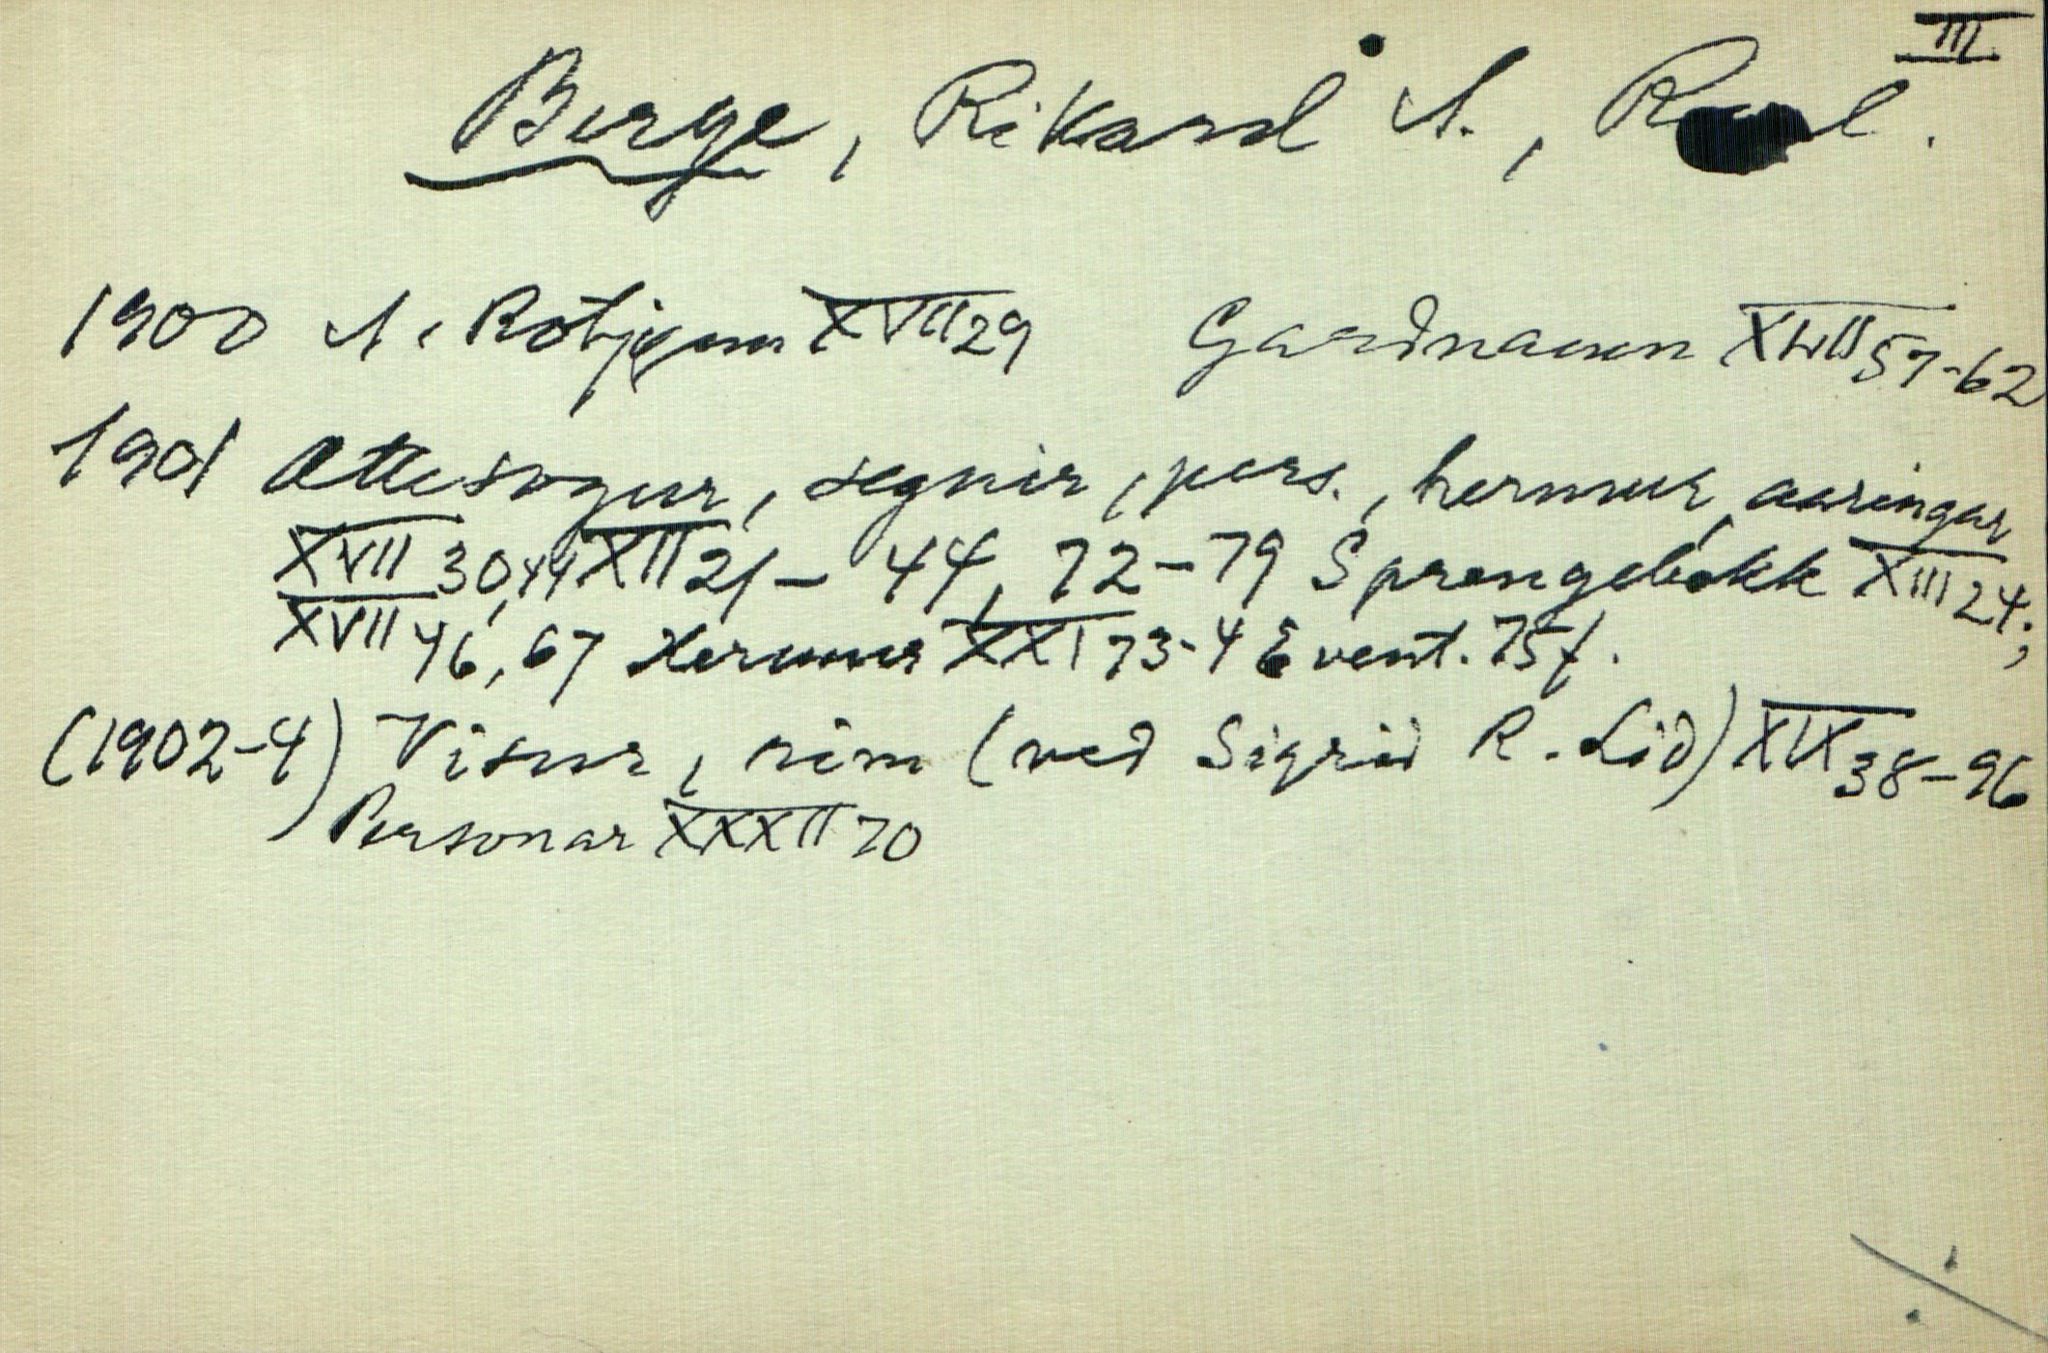 III
Berge, Rikard A., R l.
1900 A. Rotjern XVII 29 Gardnamn XLII 57-62
1901 Attesogur, segnir, pers., hermur, aaringar
XVII 30,44 XII 21 – 44, 72–79 Sprengelækk XIII 24;
XVII 46, 67 Hermur XXI 73-4 Event. 75f.
(1902–4) Visur, rim (ved Sigrid R. Lid) XIX 38–96
Personar XXXII 70